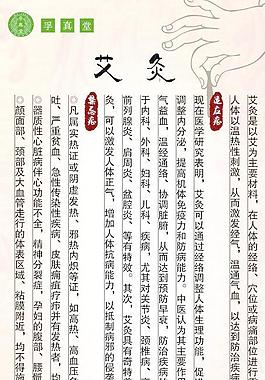 孚真堂
艾灸
适应症
艾灸是以艾为主要材料，在人体的经络、穴位或病痛部位进行
人体以温热性刺激，从而激发经气，温通气血，以达到防治疾
现在医学研究表明，艾灸可以通过经络调整人体生理功能，促
调整内分泌，提高机体免疫力和防病能力。中医认为其主要作用
气益血，温经通络，协调脏腑，从而达到预防早衰，防治疾病
于内科、外科、妇科、儿科、疾病，尤其对关节炎、颈椎病、
前列腺炎、肩周炎、盆腔炎、等有特效。其次，艾灸具有奇特
灸，可以激发人体正气，增加人体抗病能力，以抵制病邪的侵
禁忌症
凡属实热证或阴虚发热、邪热内炽等证，如高热、高血压危
吐、严重贫血、急性传染性疾病、皮肤痈疽疔疖并有发热者，均
器质性心脏病伴心功能不全，精神分裂症，孕妇的腹部、腰
颜面部、颈部及大血管走行的体表区域、粘膜附近，均不得施